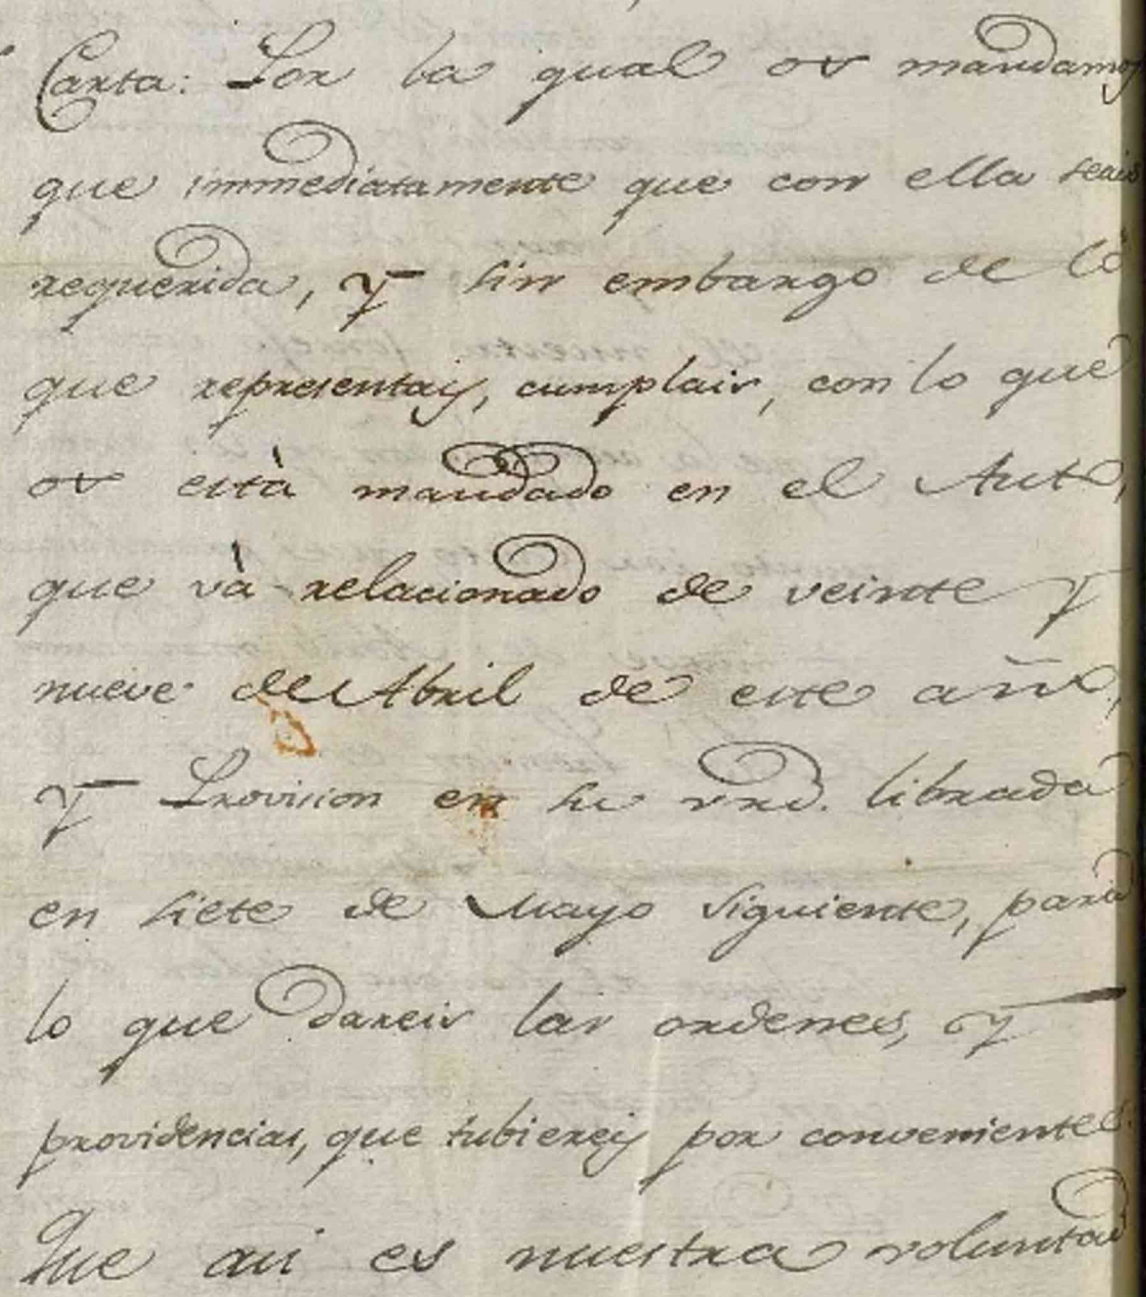 Carta: Por la qual os mandamos
que immediatamente que con ella seais
requerida, y sin embargo de lo
que representais, cumplais, con lo que
os està mandado en el Auto,
que và relacionado de veinte y
nueve de Abril de este año,
y Provision en su vrd. librada
en siete de Mayo siguiente, para
lo que dareis las ordenes, y
providencias, que tubiereis por convenientes.
Que asi es nuestra voluntad